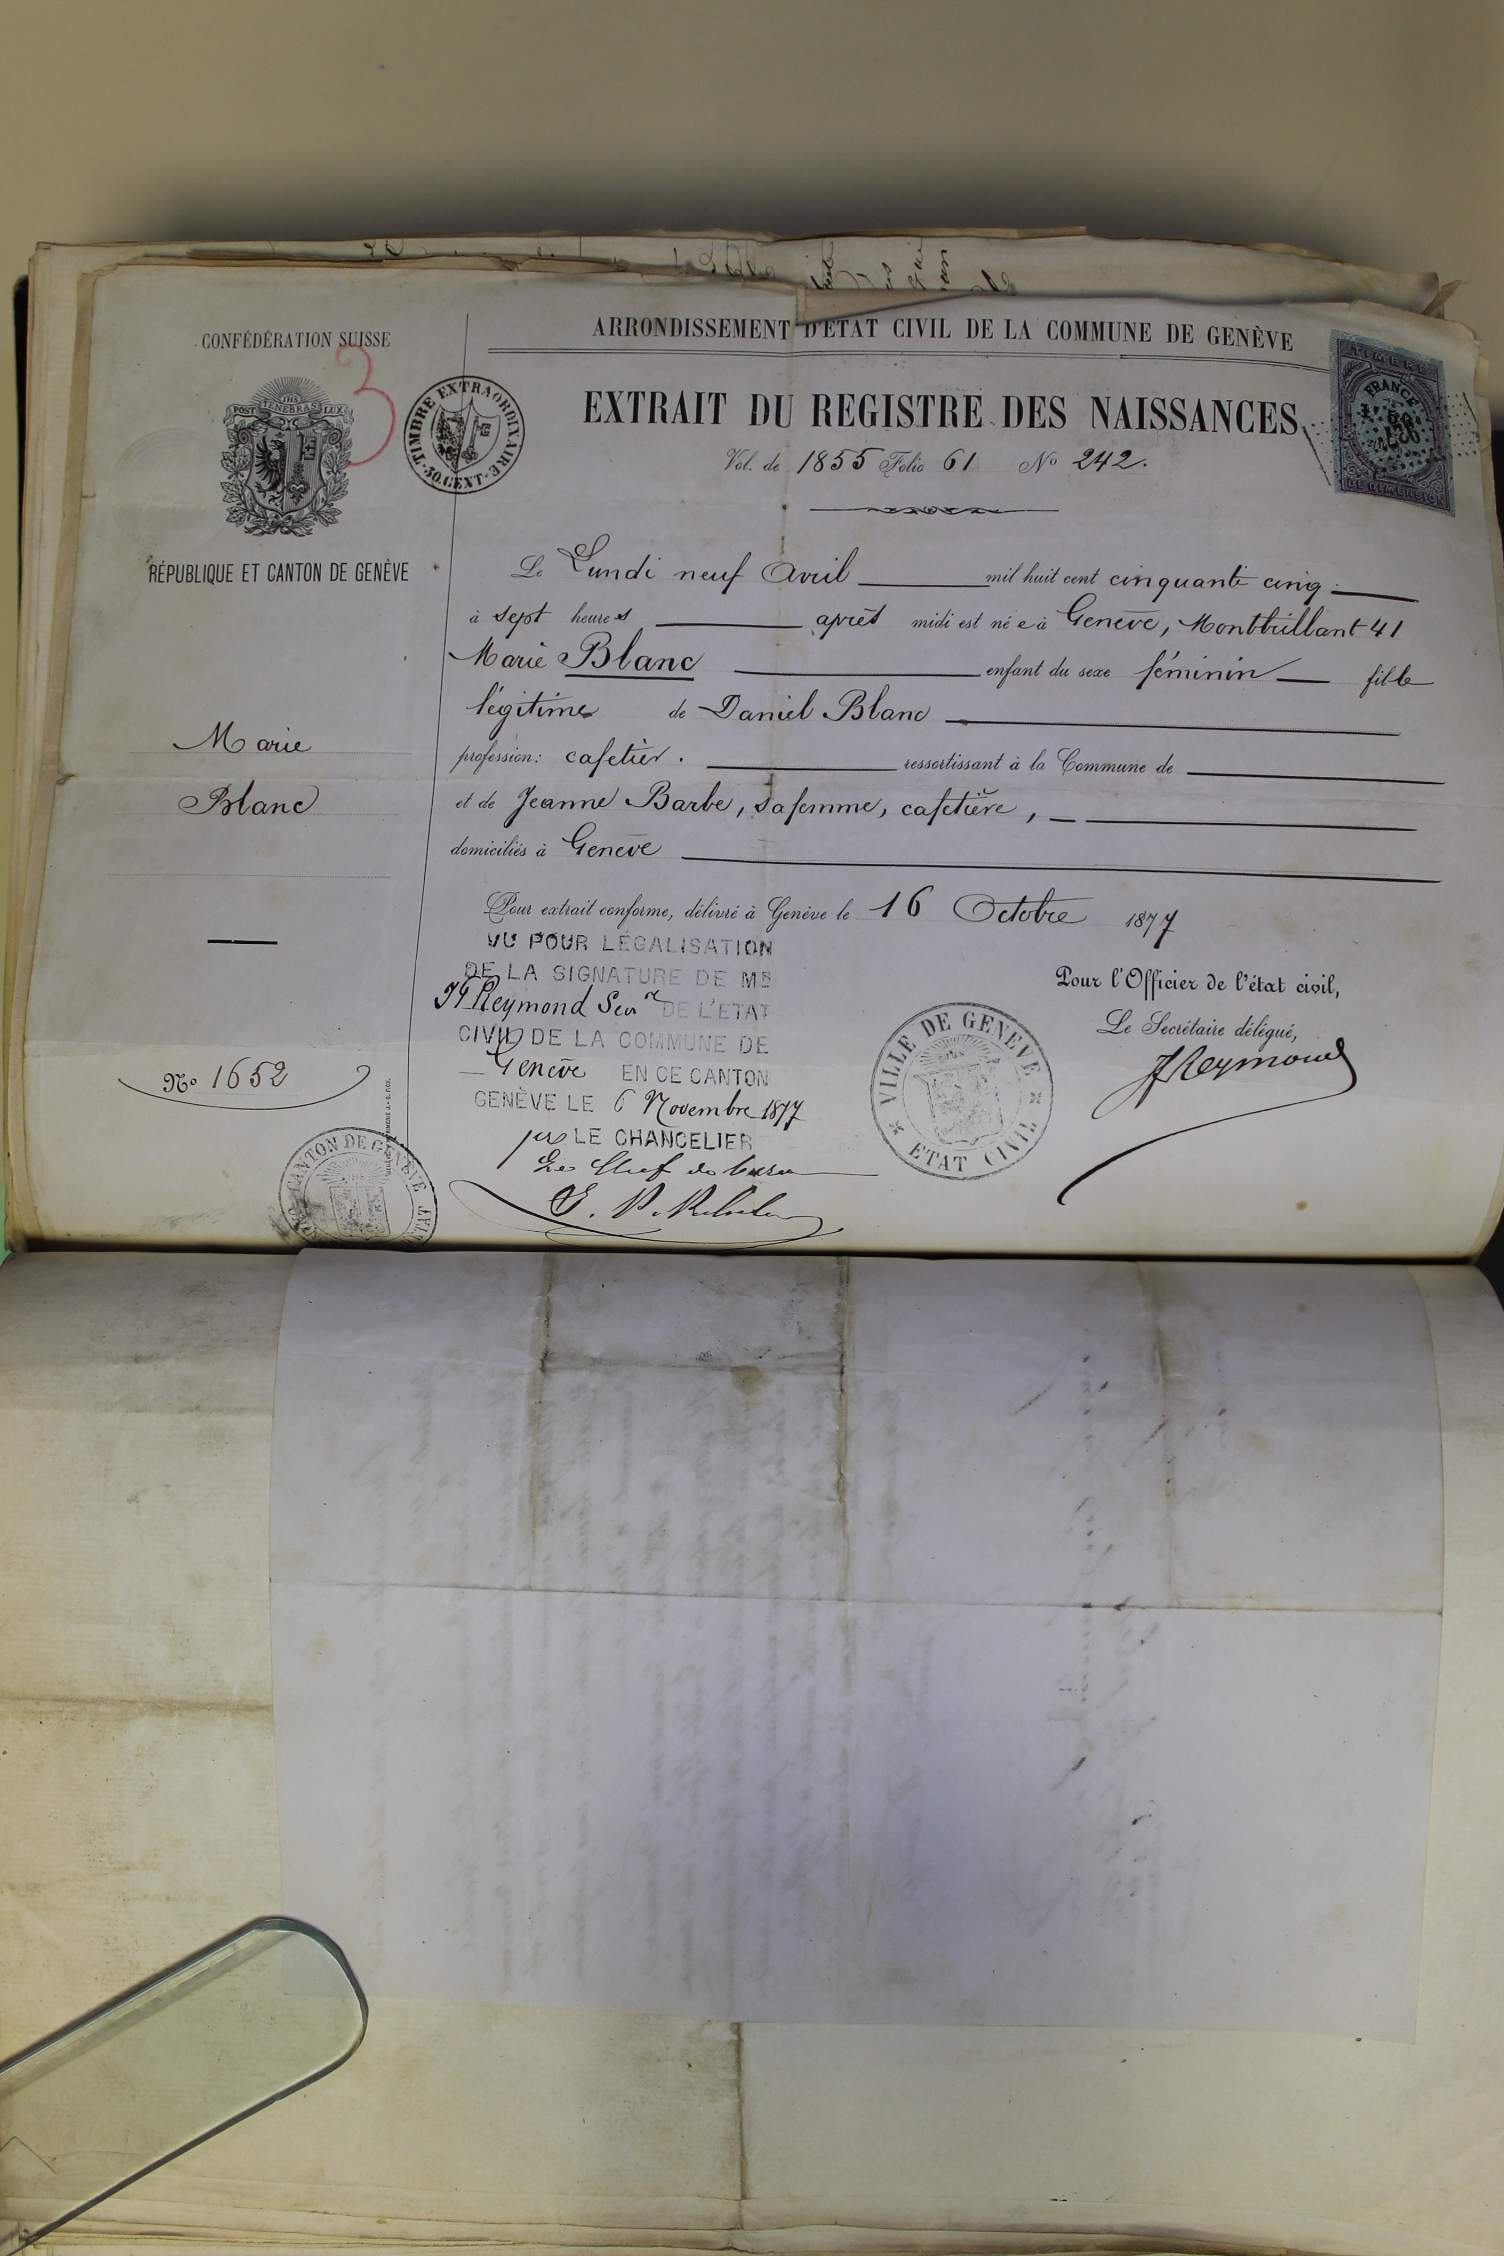 CONFÉDÉRATION SUISSE
3
POST TENEBRAS LUX
TIMBRE EXTRAORDINAIRE
30.CENT
RÉPUBLIQUE ET CANTON DE GENÈVE
Marie
Blanc
No 1652
ARRONDISSEMENT D'ÉTAT CIVIL DE LA COMMUNE DE GENÈVE
TIMBRE
FRANCE
DE DIMENSION
EXTRAIT DU REGISTRE DES NAISSANCES
Vol. de 1855 Folio 61 No 242.
Le Lundi neuf Avril mil huit cent cinquante cinq
à sept heures après midi est née à Genève, Montbrillant 41
Marie Blanc enfant du sexe féminin fille
légitime de Daniel Blanc
profession: cafetier. ressortissant à la Commune de
et de Jeanne Barbe, sa femme, cafetière,
domiciliés à Genève
Pour extrait conforme, délivré à Genève le 16 Octobre 1877
VU POUR LÉGALISATION
DE LA SIGNATURE DE MR
Reymond Secre DE L'ETAT
CIVIL DE LA COMMUNE DE
Genève EN CE CANTON
GENÈVE LE 6 Novembre 1877
pr LE CHANCELIER
Le Chef de bureau
Pour l'Officier de l'état civil,
Le Secrétaire délégué,
JReymond
VILLE DE GENÈVE
ETAT CIVIL
CANTON DE GENÈVE